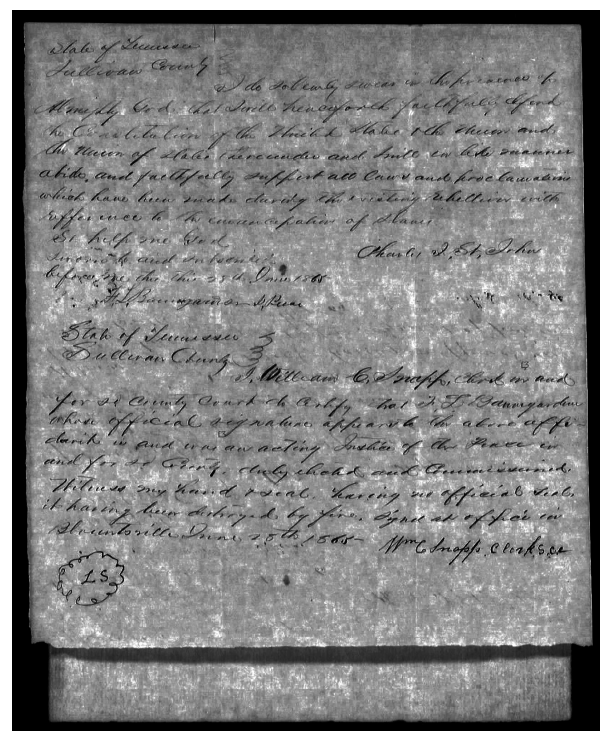 State of Tennessee
Sullivan County
I do solemnly swear in the presence of
Almighty God that I will henceforth faithfully defend
the Constitution of the United States & the Union and
the Union of States thereunder and I will in like manner
abide, and faithfully support all laws and proclamations
which have been made during the existing rebellion with
refference to the emancipation of slaves
So help me God
Sworn to and subscribed
before me this 28th June 1865
Charles J. St. John
F. L. Baumgardner
State of Tennessee
Sullivan County
I, William C. Snapp, Clerk in and
for sd County Court do Certify that F. L. Baumgardner
whose official signature appears to the above affi-
davit is and was an acting Justice of the Peace in
and for sd County, duly elected and Commissioned.
Witness my hand & seal. having no official seal,
it having been destroyed by fire. Signd at office in
Blountville June 28th 1865
Wm C Snapp, Clerk S. Ct
L S